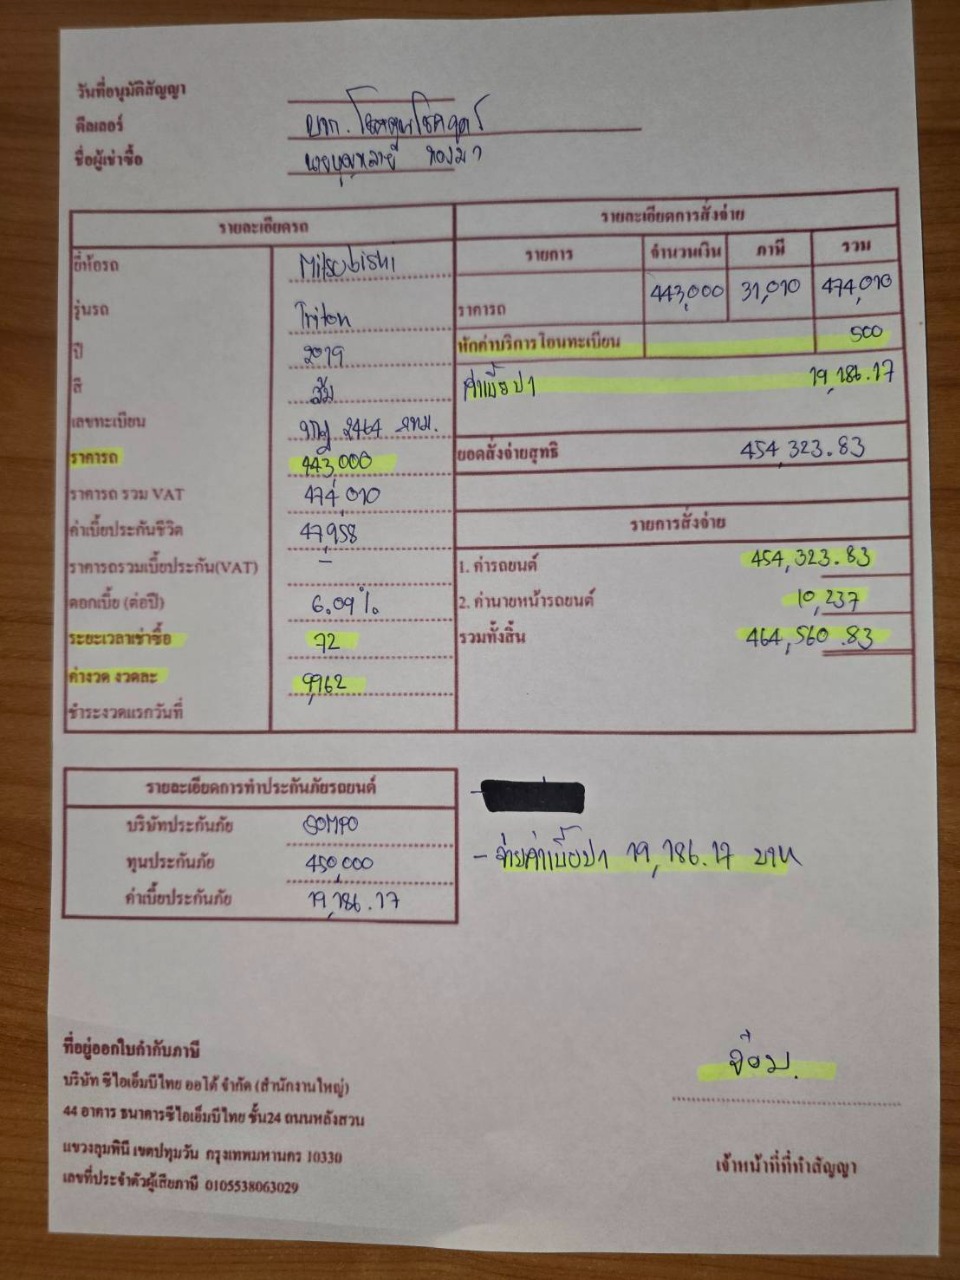 วันที่อนุมัติสัญญา
ดีลเลอร์ บจก.
ชื่อผู้เช่าซื้อ นายบุญหลาย ทองมา
รายละเอียดรถ
ยี่ห้อรถ Mitsubishi
รุ่นรถ Triton
ปี 2019
สี ส้ม
เลขทะเบียน 2464 กทม.
ราคารถ 443,000
ราคารถ รวม VAT 474,010
ค่าเบี้ยประกันชีวิต 47,958
ราคารถรวมเบี้ยประกัน(VAT) -
ดอกเบี้ย (ต่อปี) 6.09%
ระยะเวลาเช่าซื้อ 72
ค่างวด งวดละ 9,962
ชำระงวดแรกวันที่
รายละเอียดการสั่งจ่าย
รายการ จำนวนเงิน ภาษี รวม
ราคารถ 443,000 31,010 474,010
หักค่าบริการโอนทะเบียน 500
ค่าเบี้ยป1 19,186.17
ยอดสั่งจ่ายสุทธิ 454,323.83
รายการสั่งจ่าย
1. ค่ารถยนต์ 454,323.83
2. ค่านายหน้ารถยนต์ 10,237
รวมทั้งสิ้น 464,560.83
รายละเอียดการทำประกันภัยรถยนต์
บริษัทประกันภัย SOMPO
ทุนประกันภัย 450,000
ค่าเบี้ยประกันภัย 19,186.17
-
- จ่ายค่าเบี้ยป1 19,186.17 บาท
ที่อยู่ออกใบกำกับภาษี
บริษัท ซีไอเอ็มบีไทย ออโต้ จำกัด (สำนักงานใหญ่)
44 อาคาร ธนาคารซีไอเอ็มบีไทย ชั้น24 ถนนหลังสวน
แขวงลุมพินี เขตปทุมวัน กรุงเทพมหานคร 10330
เลขที่ประจำตัวผู้เสียภาษี 0105538063029
เจ้าหน้าที่ที่ทำสัญญา